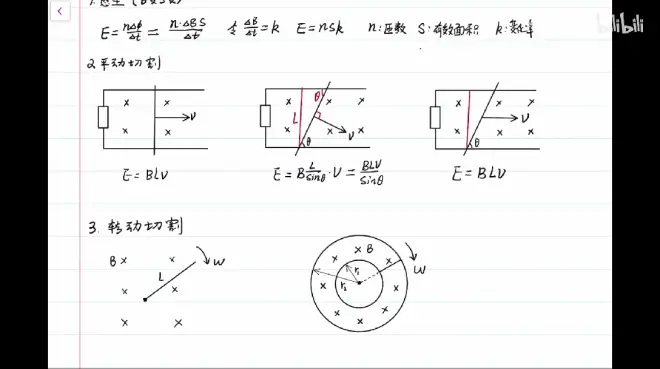 E = nΔΦ/Δt = n·ΔB S/Δt 令 ΔB/Δt = k E = nSk n:匝数 S:有效面积 k:变化率
2.平动切割
L θ v θ
v
v θ
E = BLV
E = B L/sinθ · V = BLV/sinθ
E = BLV
3. 转动切割
B L ω
B r₁ r₂ ω
bilibili